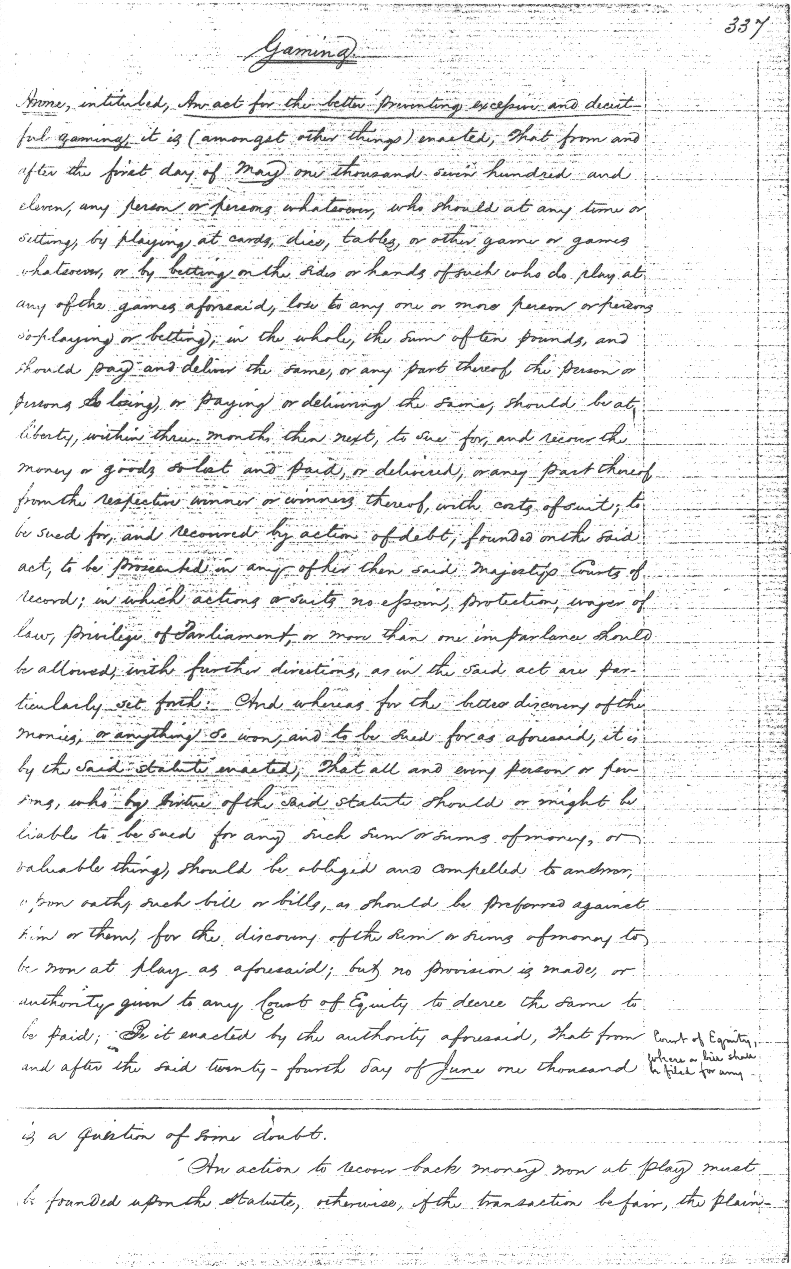 337
Gaming.
Anne, intituled, An act for the better preventing excessive and deceit-
ful gaming, it is (amongst other things) enacted, That from and
after the first day of May one thousand seven hundred and
eleven, any person or persons whatsoever, who should at any time or
setting, by playing at cards, dice, tables, or other game or games
whatsoever, or by betting on the sides or hands of such who do play at
any of the games aforesaid, lose to any one or more person or persons
so playing or betting, in the whole, the sum of ten pounds, and
should pay and deliver the same, or any part thereof, the person or
persons so losing, or paying or delivering the same, should be at
liberty, within three months then next, to sue for, and recover the
money or goods so lost and paid, or delivered, or any part thereof
from the respective winner or winners thereof, with costs of suit; to
be sued for, and recovered by action of debt, founded on the said
act, to be prosecuted in any of her then said Majesty's Courts of
record; in which actions or suits no essoin, protection, wager of
law, privilege of Parliament, or more than one imparlance should
be allowed, with further directions, as in the said act are par-
ticularly set forth: And whereas for the better discovery of the
monies, or anything so won, and to be sued for as aforesaid, it is
by the said statute enacted, That all and every person or per
sons, who by virtue of the said statute should or might be
liable to be sued for any such sum or sums of money, or
valuable thing, should be obliged and compelled to answer,
upon oath, such bill or bills, as should be preferred against
him or them, for the discovery of the sum or sums of money to
be won at play as aforesaid; but no provision is made, or
authority given to any Court of Equity to decree the same to
be paid; Be it enacted by the authority aforesaid, That from
and after the said twenty-fourth day of June one thousand
Court of Equity,
where a bill shall
be filed for any
is a question of some doubt.
An action to recover back money won at play must
be founded upon the statute, otherwise, if the transaction be fair, the plain-